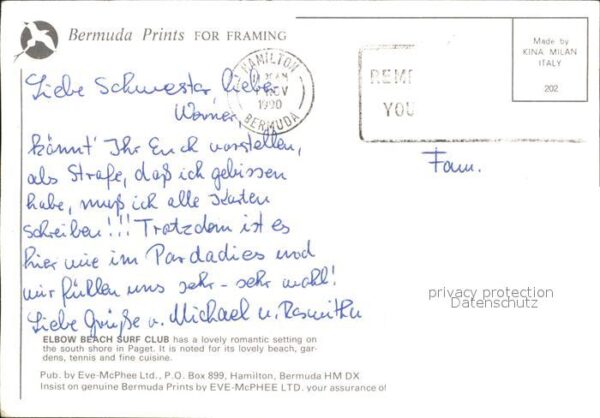 Bermuda Prints FOR FRAMING
Made by
KINA MILAN
ITALY
202
HAMILTON
NOV
1990
BERMUDA
REME
YOU
Liebe Schwester lieber
Werner,
könnt' Ihr Euch vorstellen,
als Strafe, daß ich gebissen
habe, muß ich alle Karten
schreiben!!! Trotzdem ist es
hier wie im Pardadies und
wir fühlen uns sehr - sehr wohl!
Liebe Grüße v. Michael u.
Fam.
privacy protection
Datenschutz
ELBOW BEACH SURF CLUB has a lovely romantic setting on
the south shore in Paget. It is noted for its lovely beach, gar-
dens, tennis and fine cuisine.
Pub. by Eve-McPhee Ltd., P.O. Box 899, Hamilton, Bermuda HM DX
Insist on genuine Bermuda Prints by EVE-McPHEE LTD. your assurance of